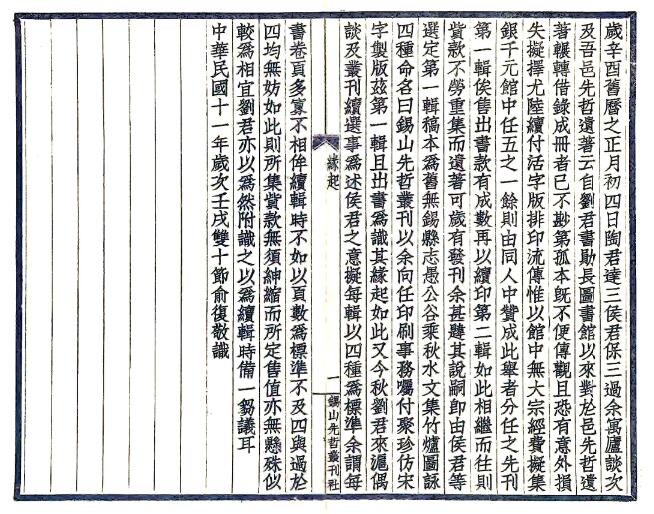 歲辛酉舊曆之正月初四日陶君達三侯君保三過余寓廬談次
及吾邑先哲遺著云自劉君書勛長圖書館以來對於邑先哲遺
著輾轉借錄成冊者已不尠第孤本旣不便傳觀且恐有意外損
失擬擇尤陸續付活字版排印流傳惟以館中無大宗經費擬集
銀千元館中任五之一餘則由同人中贊成此舉者分任之先刊
第一輯俟售出書款有成數再以續印第二輯如此相繼而往則
貲款不勞重集而遺著可歲有發刊余甚韙其說嗣卽由侯君等
選定第一輯稿本爲舊無錫縣志愚公谷乘秋水文集竹爐圖詠
四種命名曰錫山先哲叢刊以余向任印刷事務囑付聚珍仿宋
字製版茲第一輯且出書爲識其緣起如此又今秋劉君來滬偶
談及叢刊續選事爲述侯君之意擬每輯以四種爲標準余謂每
緣起
一
錫山先哲叢刊社
書卷頁多寡不相侔續輯時不如以頁數爲標準不及四與過於
四均無妨如此則所集貲款無須紳縮而所定售值亦無懸殊似
較爲相宜劉君亦以爲然附識之以爲續輯時備一芻議耳
中華民國十一年歲次壬戌雙十節俞復敬識